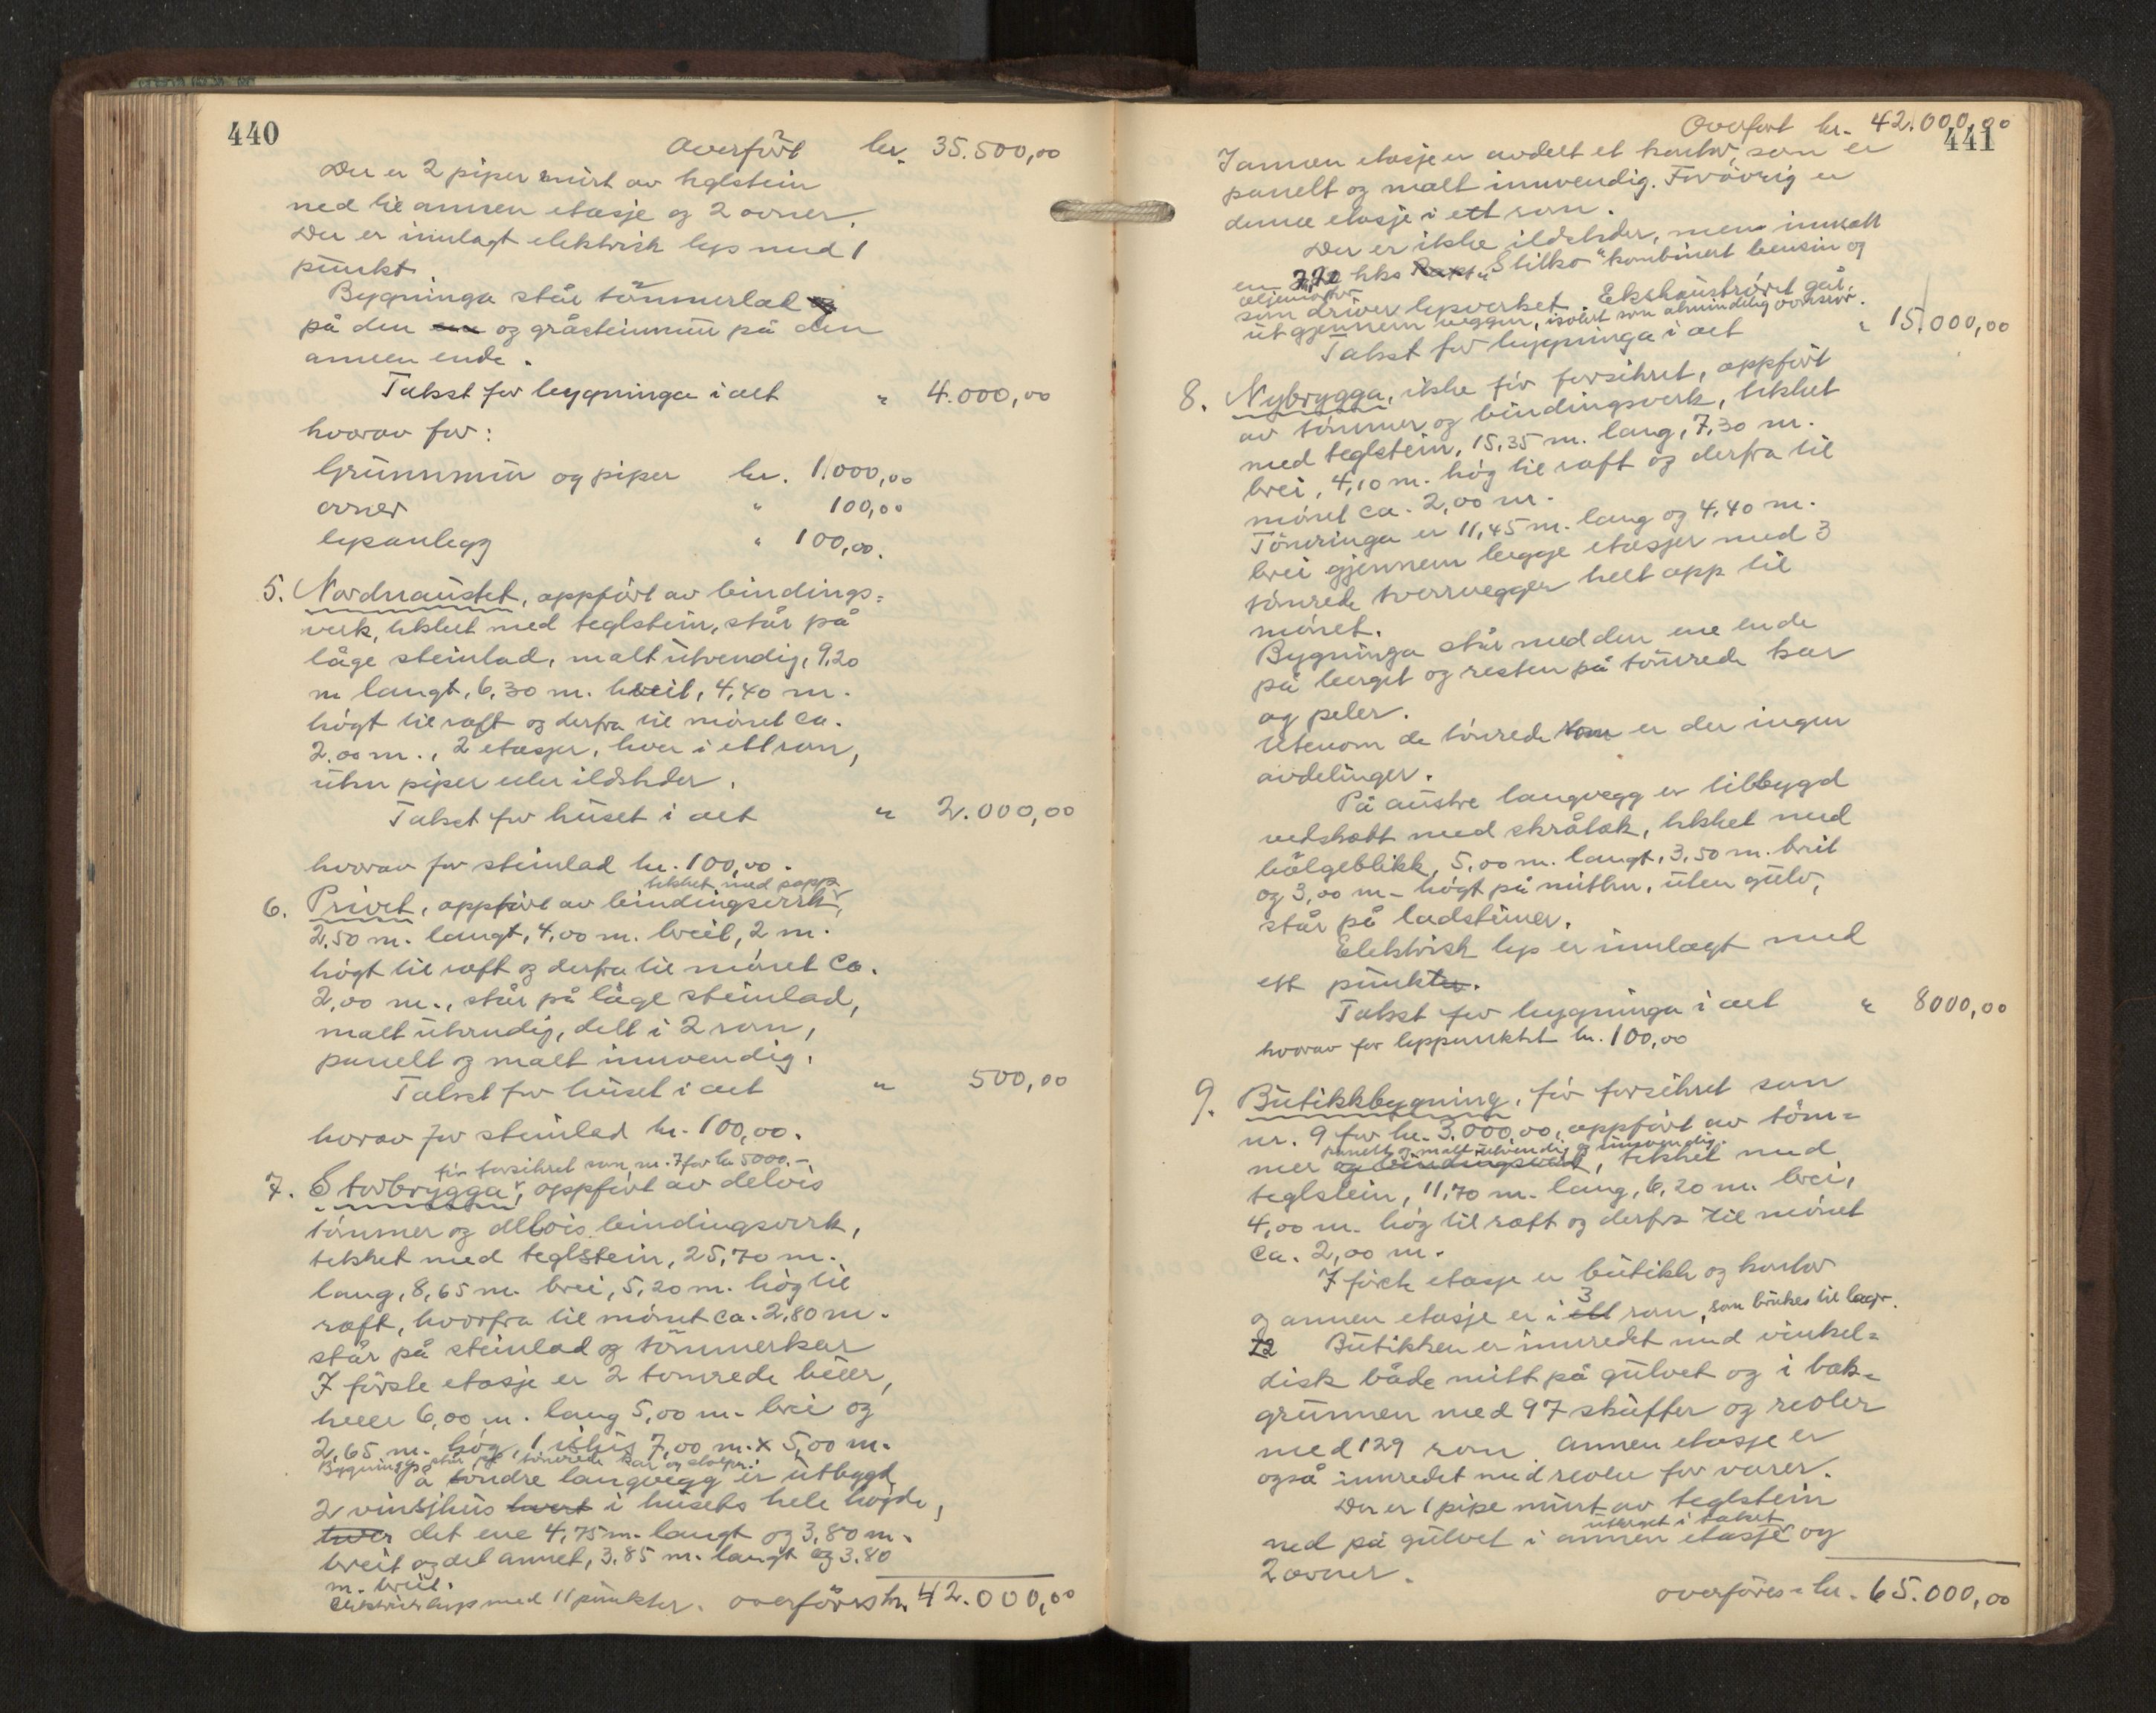 440
Overført kr. 35.500,00
Der er 2 piper murt av teglstein
ned til annen etasje og 2 ovner.
Der er innlagt elektrisk lys med 1
punkt.
Bygninga står tømmerlad
på den og gråsteinmur på den
annen ende.
Takst for bygninga i alt " 4.000,00
hvorav for:
Grunnmur og piper kr. 1.000,00
ovner " 100,00
lysanlegg " 100,00.
5. Nordnaustet, oppført av bindings=
verk, tekket med teglstein, står på
låge steinlad, malt utvendig, 9,20
m langt, 6,30 m. breit, 4,40 m.
högt til raft og derfra til mönet ca.
2.00 m., 2 etasjer, hver i ett rom,
uten piper eller ildsteder.
Takst for huset i alt " 2.000,00
hvorav for steinlad kr. 100,00.
tekket med papp
6. Privet, oppført av bindingsverk,
2,50 m. langt, 4,00 m. breit, 2 m.
högt til raft og derfra til mönet ca.
2,00 m., står på låge steinlad,
malt utvendig, delt i 2 rom,
panelt og malt innvendig.
Takst for huset i alt " 500,00
hvorav for steinlad kr. 100,00.
før forsikret som nr. 7 for kr 5000.-
7. Storbrygga, oppført av delvis
tømmer og delvis bindingsverk,
tekket med teglstein, 25,70 m.
lang, 8,65 m. brei, 5,20 m. hög til
raft, hvorfra til mönet ca. 2,80 m.
står på steinlad og tömmerkar
I første etasje er 2 tomrede buer,
6,00 m. lang 5,00 m. brei og
2,65 m. høg, 1 ishus 7,00 m. x 5,00 m.
Bygninga står på tömrede kar og stolper.
På söndre langvegg er utbygt
2 vinsjhus hvert i husets hele højde,
det ene 4,75 m. langt og 3,80 m.
breit og det annet, 3,85 m. langt og 3.80
m. breit.
Elektrisk lys med 11 punkter. overføres kr. 42.000,00
441
Overført kr. 42.000,00
I annen etasje er avdelt et kontor, som er
panelt og malt innvendig. Forøvrig er
denne etasje i ett rom.
Der er ikke ildsteder, men innsatt
en hks "Slilko" kombinert bensin og
oljemotor
som driver lysverket. Ekshaustrøret går
ut gjennem veggen, isolert som almindelig ovnsrør.
Takst for bygninga i alt " 15.000,00
8. Nybrygga, ikke før forsikret, oppført
av tömmer og bindingsverk, tekket
med teglstein, 15,35 m. lang, 7,30 m.
brei, 4,10 m. hög til raft og derfra til
mönet ca. 2,00 m.
Tömringa er 11,45 m. lang og 4,40 m.
brei gjennem begge etasjer med 3
tömrede tverrvegger helt opp til
mönet.
Bygninga står med den ene ende
på berget og resten på tömrede kar
og peler.
Utenom de tömrede rom er der ingen
avdelinger.
På austre langvegg er tilbygd
vedskott med skråtak, tekket med
bölgeblikk, 5,00 m. langt, 3,50 m. breit
og 3,00 m. högt på mitten, uten gulv,
står på ladsteiner.
Elektrisk lys er innlagt med
ett punkter.
Takst for bygninga i alt " 8000,00
hvorav for lyspunktet kr. 100,00
9. Butikkbygning, før forsikret som
nr. 9 for kr. 3.000,00, oppført av töm=
panelt og malt utvendig og innvendig.
mer og bindingsverk, tekket med
teglstein, 11,70 m. lang, 6,20 m. brei,
4,00 m. hög til raft og derfra til mönet
ca. 2,00 m.
I förste etasje er butikk og kontor
og annen etasje er i ett 3 rom, som brukes til lager.
Butikken er innredet med vinkel=
disk både mitt på gulvet og i bak=
grunnen med 97 skuffer og reoler
med 129 rom. Annen etasje er
også innredet med reoler for varer.
Der er 1 pipe murt av teglstein
ned på gulvet i annen etasje og
2 ovner.
overføres kr. 65.000,00